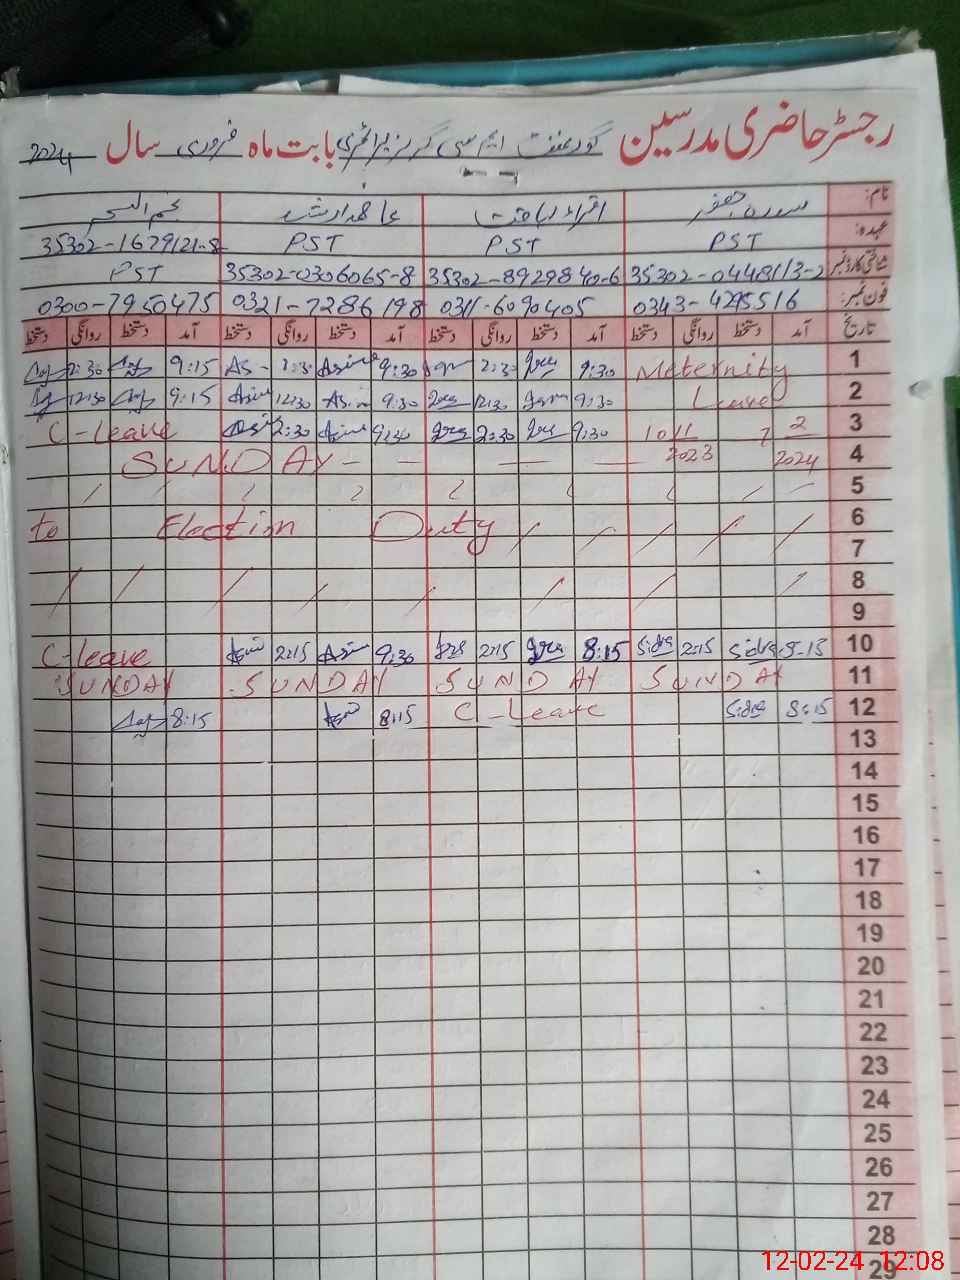 رجسٹر حاضری مدرسین گورنمنٹ ایم سی گرلز پرائمری بابت ماہ فروری سال 2024
نام: سدرہ جعفر اقراء ریاضت نجم السحر
عہدہ: PST PST PST 35302-1679121-8
شناختی کارڈ نمبر 35302-0448113-2 35302-8929840-6 35302-0306065-8 PST
فون نمبر: 0343-4295516 0311-6090405 0321-7286198 0300-7950475
تاریخ آمد دستخط روانگی دستخط آمد دستخط روانگی دستخط آمد دستخط روانگی دستخط آمد دستخط روانگی دستخط
9:15 9:30 9:30 Meternity 1
12:30 9:15 12:30 9:30 12:30 9:30 Leave 2
C-leave 2:30 9:30 2:30 9:30 10/11/2023 7 2/2024 3
SUNDAY 4
5
to Election Duty 6
7
8
9
C-leave 2:15 9:30 2:15 8:15 Sidra 2:15 Sidra 10
SUNDAY SUNDAY SUNDAY SUNDAY 11
8:15 8:15 C-Leave Sidra 8:15 12
13
14
15
16
17
18
19
20
21
22
23
24
25
26
27
28
29
12-02-24 12:08